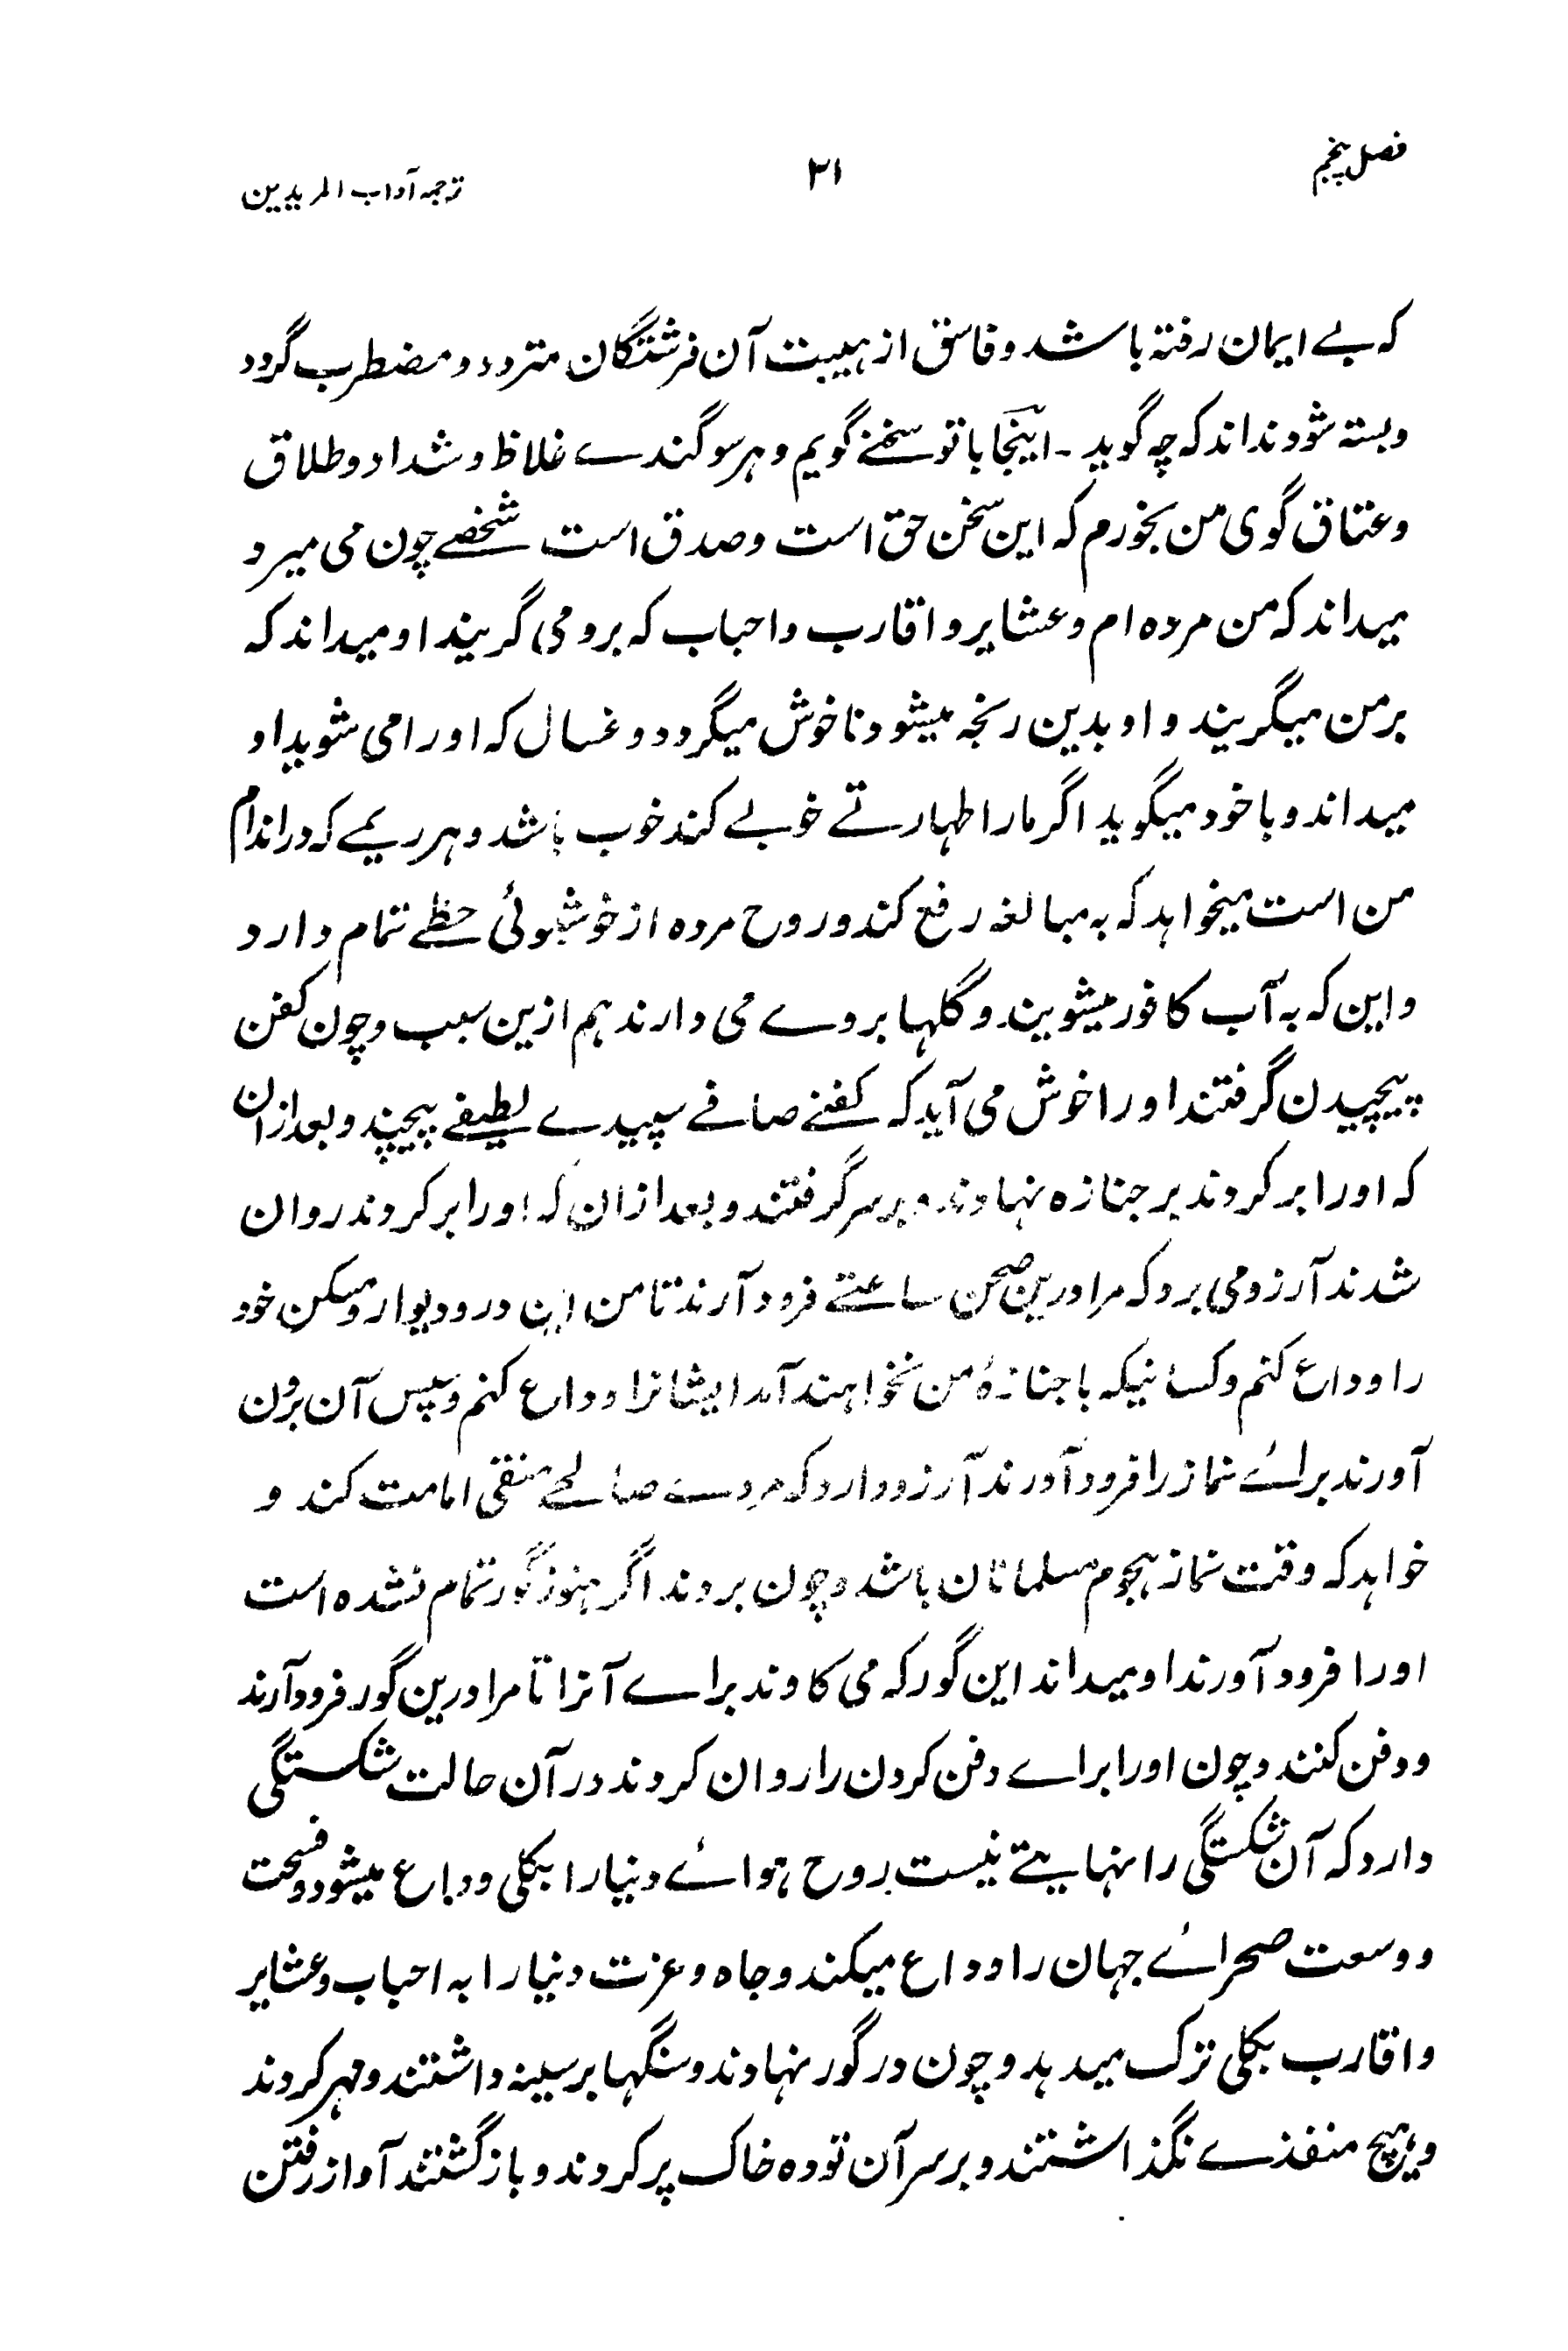 فصل پنجم
۲۱
ترجمہ آداب المریدین
کہ بے ایمان رفتہ باشد و فاسق از ہیبت آن فرشتگان متردد و مضطرب گردد
وبستہ شود نداند کہ چہ گوید ۔ اینجا با تو سخنے گویم و ہر سوگندے غلاظ و شداد و طلاق
وعتاق گوی من بخورم کہ این سخن حق است وصدق است شخصے چون می میرد
میداند کہ من مردہ ام و عشایر و اقارب و احباب کہ برو می گریند او میداند کہ
بر من میگریند و او بدین رنجہ میشود ناخوش میگردد و غسال کہ اورا می شوید او
میداند و با خود میگوید اگر مارا طہارتے خوبے کند خوب باشد و ہر ریمے کہ در اندام
من است میخواہد کہ بہ مبالغہ رفع کند و روح مردہ از خوشبوئی حظے تمام دارد
واین کہ بہ آب کافور میشویند و گلہا بروے می دارند ہم ازین سبب و چون کفن
پیچیدن گرفتند اورا خوش می آید کہ کفنے صافے سپیدے لطیفے پیچند و بعد ازان
کہ اورا بر کردند بر جنازہ نہادند و بر سر گرفتند و بعد ازان کہ اورا بر کردند روان
شدند آرزو می برد کہ مرا درین صحن ساعتے فرود آرند تا من این در و دیوار و مسکن خود
را وداع کنم و کسانیکہ با جنازۂ من نخواہند آمد ایشانرا وداع کنم و سپس آن برون
آورند برائے نماز را فرود آورند آرزو دارد کہ مردے صالحے متقی امامت کند و
خواہد کہ وقت نماز ہجوم مسلمانان باشد و چون بردند اگر ہنوز گور تمام نشدہ است
اورا فرود آورند او میداند این گور کہ می کاوند براے آنرا تا مرا درین گور فرود آرند
و دفن کنند و چون اورا براے دفن کردن را روان کردند در آن حالت شکستگی
دارد کہ آن شکستگی را نہایتے نیست روح ہوائے دنیا را بکلی وداع میشود و فسحت
و وسعت صحرائے جہان را وداع میکند و جاہ و عزت دنیا را بہ احباب و عشایر
و اقارب بکلی ترک میدہد و چون در گور نہادند و سنگہا بر سینہ داشتند و مہر کردند
و ہیچ منفذے نگذاشتند و بر سر آن تودہ خاک پر کردند و باز گشتند آواز رفتن